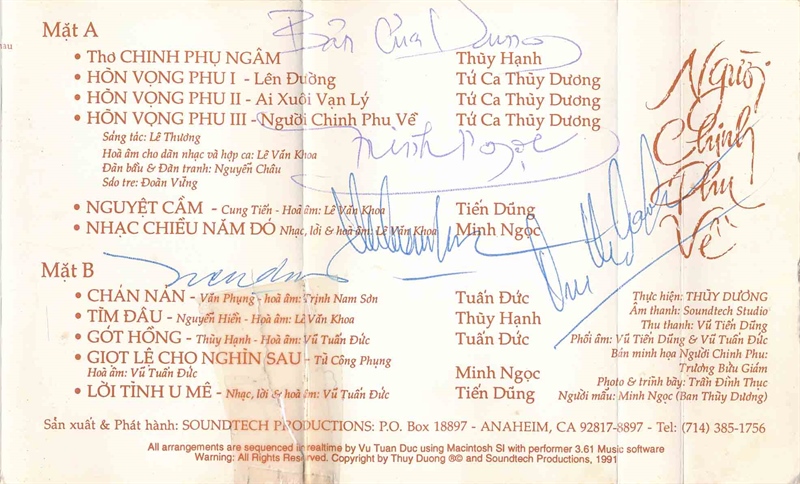 Mặt A
• Thơ CHINH PHỤ NGÂM Thùy Hạnh
• HÒN VỌNG PHU I - Lên Đường Tứ Ca Thùy Dương
• HÒN VỌNG PHU II - Ai Xuôi Vạn Lý Tứ Ca Thùy Dương
• HÒN VỌNG PHU III - Người Chinh Phu Về Tứ Ca Thùy Dương
Sáng tác: Lê Thương
Hoà âm cho dân nhạc và hợp ca: Lê Văn Khoa
Đàn bầu & Đàn tranh: Nguyễn Châu
Sáo tre: Đoàn Vũng
• NGUYỆT CẦM - Cung Tiến - Hoà âm: Lê Văn Khoa Tiến Dũng
• NHẠC CHIỀU NĂM ĐÓ Nhạc, lời & hoà âm: Lê Văn Khoa Minh Ngọc
Bản Của Dung
Minh Ngọc
Người
Chinh
Phu
Về
Mặt B
• CHÁN NẢN - Văn Phụng - hoà âm: Trịnh Nam Sơn Tuấn Đức
• TÌM ĐÂU - Nguyễn Hiền - Hoà âm: Lê Văn Khoa Thùy Hạnh
• GÓT HỒNG - Thùy Hạnh - Hoà âm: Vũ Tuấn Đức Tuấn Đức
• GIỌT LỆ CHO NGHÌN SAU - Từ Công Phụng
Hoà âm: Vũ Tuấn Đức Minh Ngọc
• LỜI TÌNH U MÊ - Nhạc, lời & hoà âm: Vũ Tuấn Đức Tiến Dũng
Thực hiện: THÙY DƯƠNG
Âm thanh: Soundtech Studio
Thu thanh: Vũ Tiến Dũng
Phối âm: Vũ Tiến Dũng & Vũ Tuấn Đức
Bản minh họa Người Chinh Phu:
Trương Bửu Giám
Photo & trình bày: Trần Đình Thục
Người mẫu: Minh Ngọc (Ban Thùy Dương)
Sản xuất & Phát hành: SOUNDTECH PRODUCTIONS: P.O. Box 18897 - ANAHEIM, CA 92817-8897 - Tel: (714) 385-1756
All arrangements are sequenced in realtime by Vu Tuan Duc using Macintosh SI with performer 3.61 Music software
Warning: All Rights Reserved. Copyright by Thuy Duong ®© and Soundtech Productions, 1991